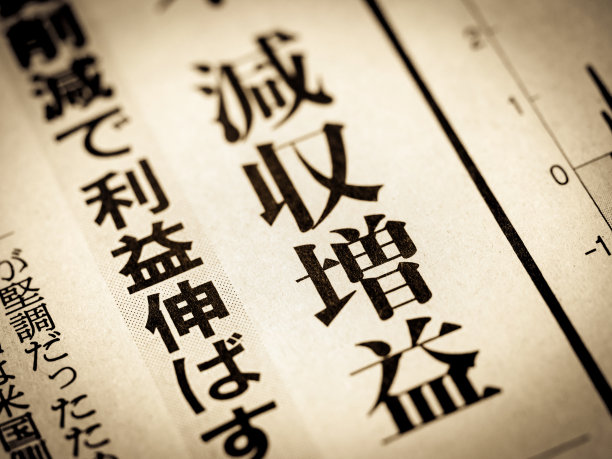 減収増益
削減で利益伸ばす
が堅調だったため
は米国側
2
1
0
-1